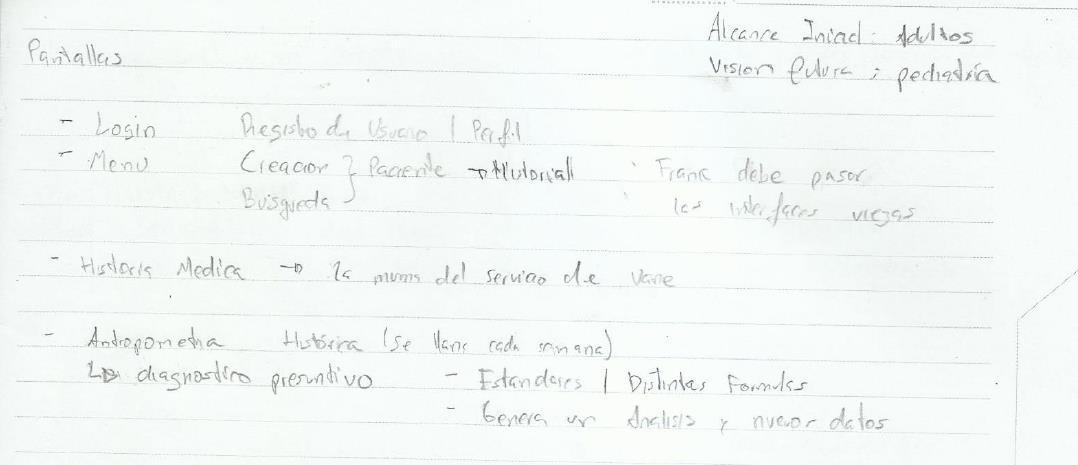 Alcance Inicial: Adultos
Pantallas
Vision futura : pediatría
- Login Registro de Usuario / Perfil
- Menu Creacion } Paciente → Historial · Franc debe pasar
Búsqueda · las interfaces viejas
- Historia Medica → la misma del servicio de Vane
- Antropometria Histórica (se llena cada semana)
↳ diagnostico presuntivo - Estandares / Distintas Formulas
- Genera un Analisis y nuevos datos